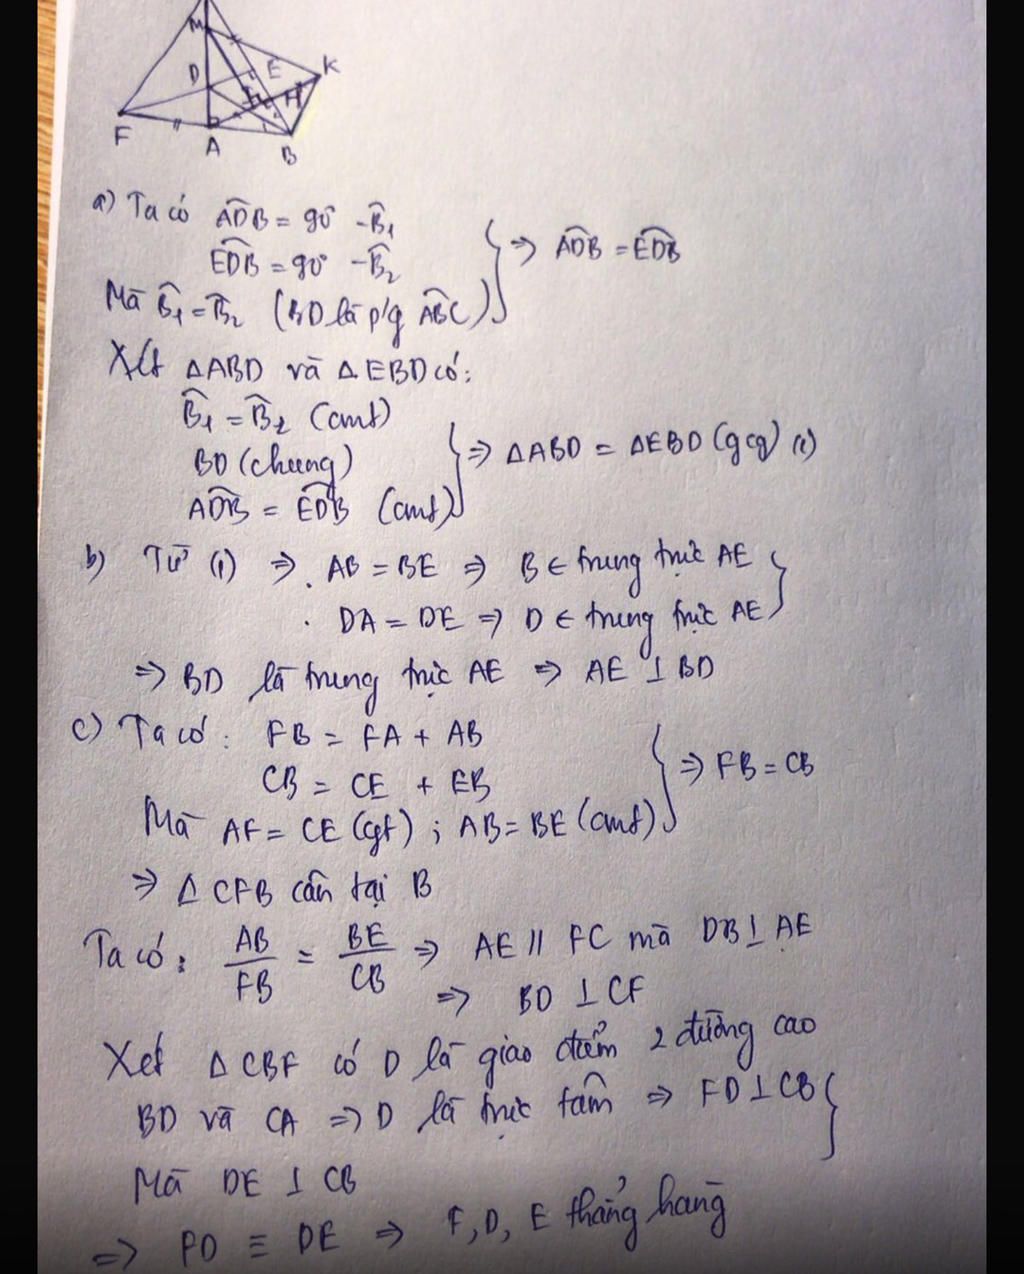 M
D E K
H
F A B
a) Ta có ADB = 90° - B̂₁
EDB = 90° - B̂₂ ⇒ ADB = EDB
Mà B̂₁ = B̂₂ (BD là p/g ABC)
Xét ΔABD và ΔEBD có:
B̂₁ = B̂₂ (cmt)
BD (chung) ⇒ ΔABD = ΔEBD (gcg) (1)
ADB = EDB (cmt)
b) Từ (1) ⇒ . AB = BE ⇒ B ∈ trung trực AE
. DA = DE ⇒ D ∈ trung trực AE
⇒ BD là trung trực AE ⇒ AE ⊥ BD
c) Ta có: FB = FA + AB
CB = CE + EB ⇒ FB = CB
Mà AF = CE (gt) ; AB = BE (cmt)
⇒ Δ CFB cân tại B
Ta có: AB/FB = BE/CB ⇒ AE // FC mà DB ⊥ AE
⇒ BD ⊥ CF
Xét Δ CBF có D là giao điểm 2 đường cao
BD và CA ⇒ D là trực tâm ⇒ FD ⊥ CB
Mà DE ⊥ CB
⇒ FD ≡ DE ⇒ F, D, E thẳng hàng